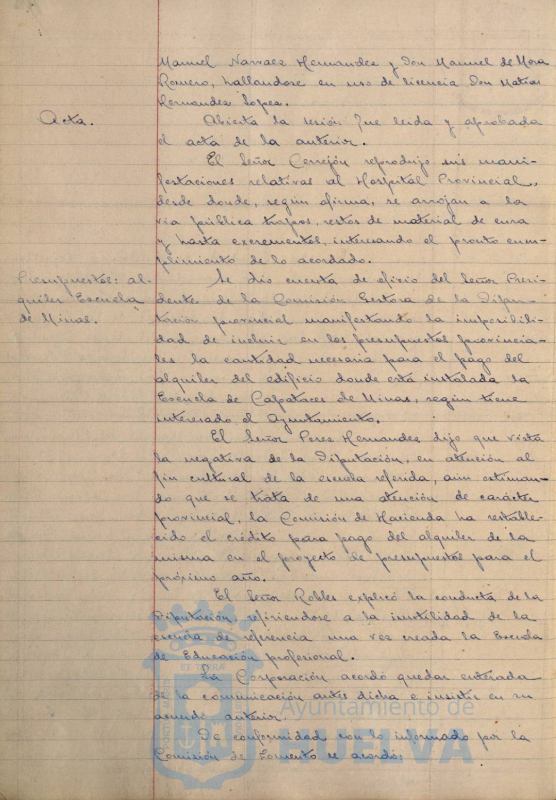 Manuel Narvaez Hernandez y Don Manuel de Mora
Romero, hallandose en uso de licencia Don Matias
Hernandez Lopez.
Acta.
Abierta la sesión fue leida y aprobada
el acta de la anterior.
El Señor Cerrejón reprodujo sus mani-
festaciones relativas al Hospital Provincial,
desde donde, según afirma, se arrojan a la
via pública trapos, restos de material de cura
y hasta excrementos, interesando el pronto cum-
plimiento de lo acordado.
Presupuestos: al-
quiler Escuela
de Minas.
Se dio cuenta de oficio del Señor Presi-
dente de la Comisión Gestora de la Dipu-
tación provincial manifestando la imposibili-
dad de incluir en los presupuestos provincia-
les la cantidad necesaria para el pago del
alquiler del edificio donde está instalada la
Escuela de Capataces de Minas, según tiene
interesado el Ayuntamiento.
El Señor Perez Hernandez dijo que vista
la negativa de la Diputación, en atención al
fin cultural de la escuela referida, aun estiman-
do que se trata de una atención de carácter
provincial, la Comisión de Hacienda ha estable-
cido el crédito para pago del alquiler de la
misma en el proyecto de presupuestos para el
próximo año.
El Señor Robles explicó la conducta de la
Diputación, refiriendose a la inutilidad de la
escuela de referencia una vez creada la Escuela
de Educación profesional.
La Corporación acordó quedar enterada
de la comunicación antes dicha e insistir en su
acuerdo anterior.
De conformidad con lo informado por la
Comisión de Fomento se acordó:
Ayuntamiento de
HUELVA